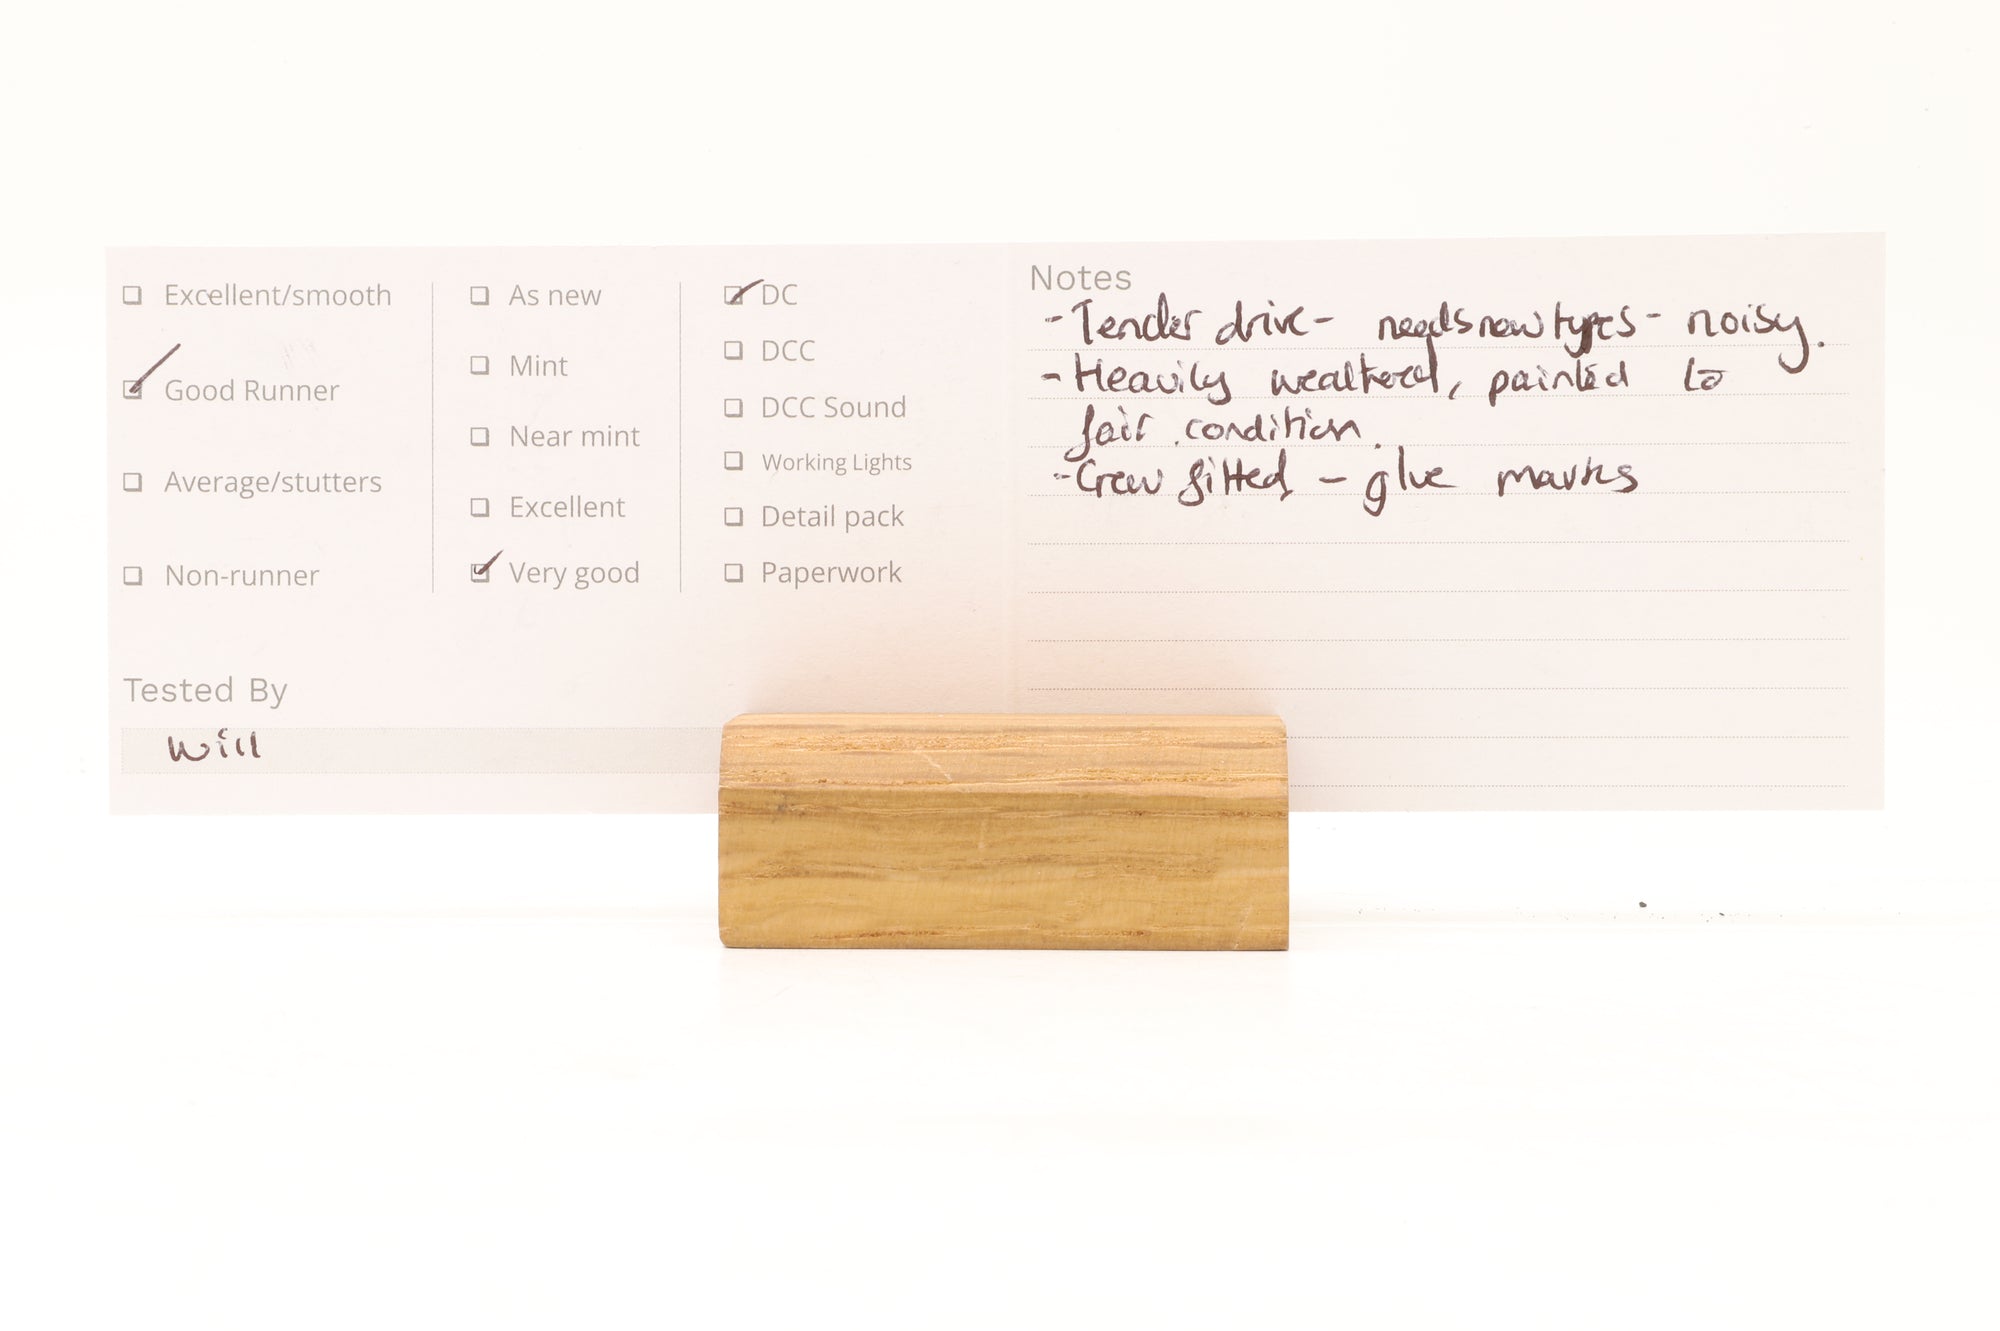 Excellent/smooth
Good Runner
Average/stutters
Non-runner
As new
Mint
Near mint
Excellent
Very good
DC
DCC
DCC Sound
Working Lights
Detail pack
Paperwork
Tested By
Will
Notes
- Tender drive - needs new tyres - noisy.
- Heavily weathered, painted to
fair condition.
- Crew fitted - glue marks